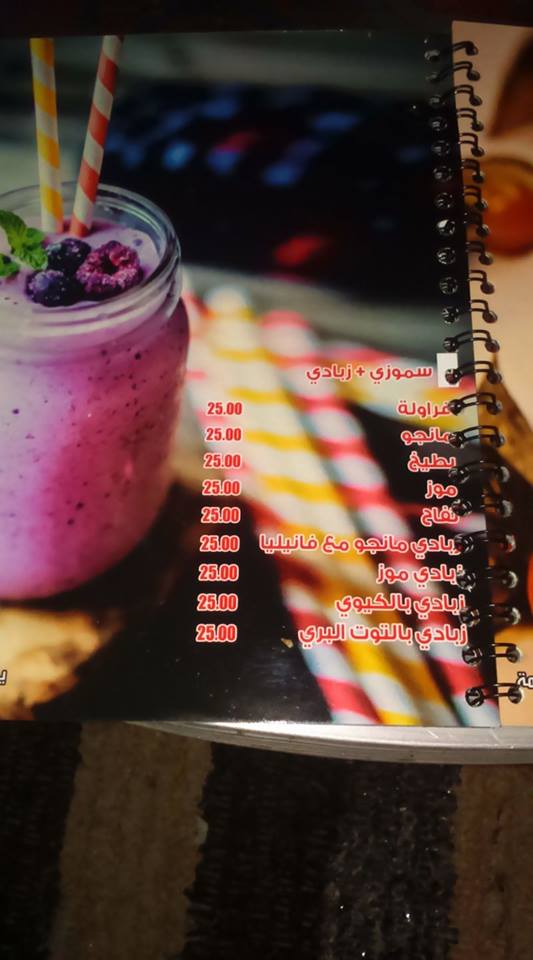 سموزي + زبادي
فراولة 25.00
مانجو 25.00
بطيخ 25.00
موز 25.00
تفاح 25.00
زبادي مانجو مع فانيليا 25.00
زبادي موز 25.00
زبادي بالكيوي 25.00
زبادي بالتوت البري 25.00